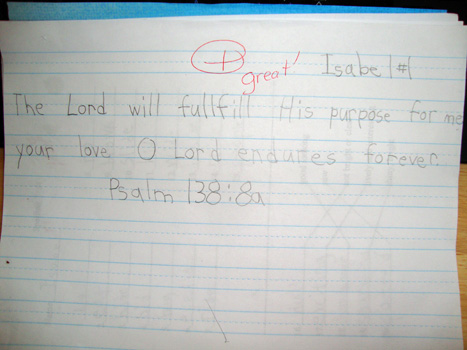 +
great!
Isabel #1
The Lord will fullfill His purpose for me
your love O Lord endures forever.
Psalm 138:8a